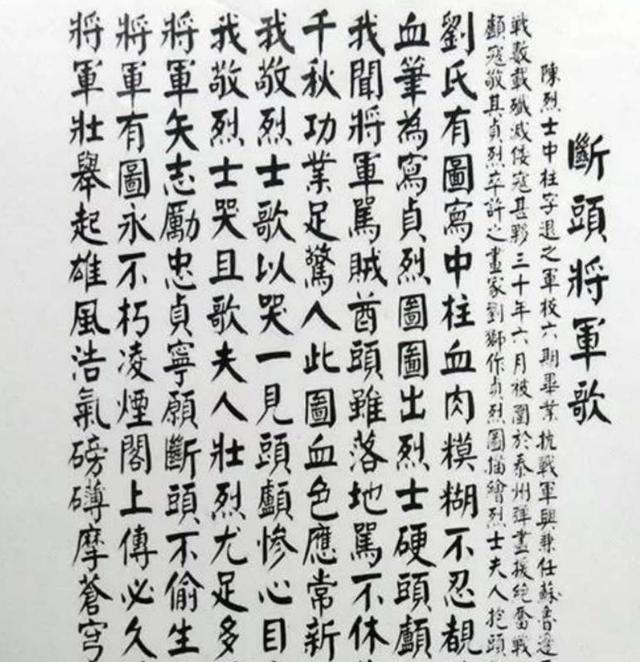 斷頭將軍歌
陳烈士中柱字退之軍校六期畢業抗戰軍興兼任蘇魯邊
戰數載殲滅倭寇甚夥三十年六月被圍於泰州彈盡援絕奮戰
顱寇敬其貞烈卒許之畫家劉獅作貞烈圖描繪烈士夫人抱頭
劉氏有圖寫中柱血肉模糊不忍覩
血筆為寫貞烈圖圖出烈士硬頭顱
我聞將軍罵賊酋頭雖落地罵不休
千秋功業足驚人此圖血色應常新
我敬烈士歌以哭一見頭顱慘心目
我敬烈士哭且歌夫人壯烈尤足多
將軍矢志勵忠貞寧願斷頭不偷生
將軍有圖永不朽凌煙閣上傳必久
將軍壯舉起雄風浩氣磅礴摩蒼穹